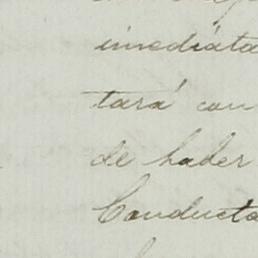 inmediáta
tará con
de haber
Conducta